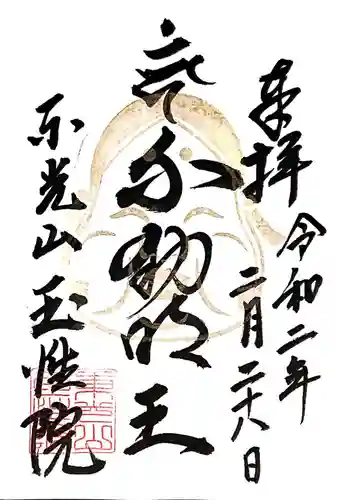 奉拝
令和二年
二月二十八日
不動明王
東光山
玉性院